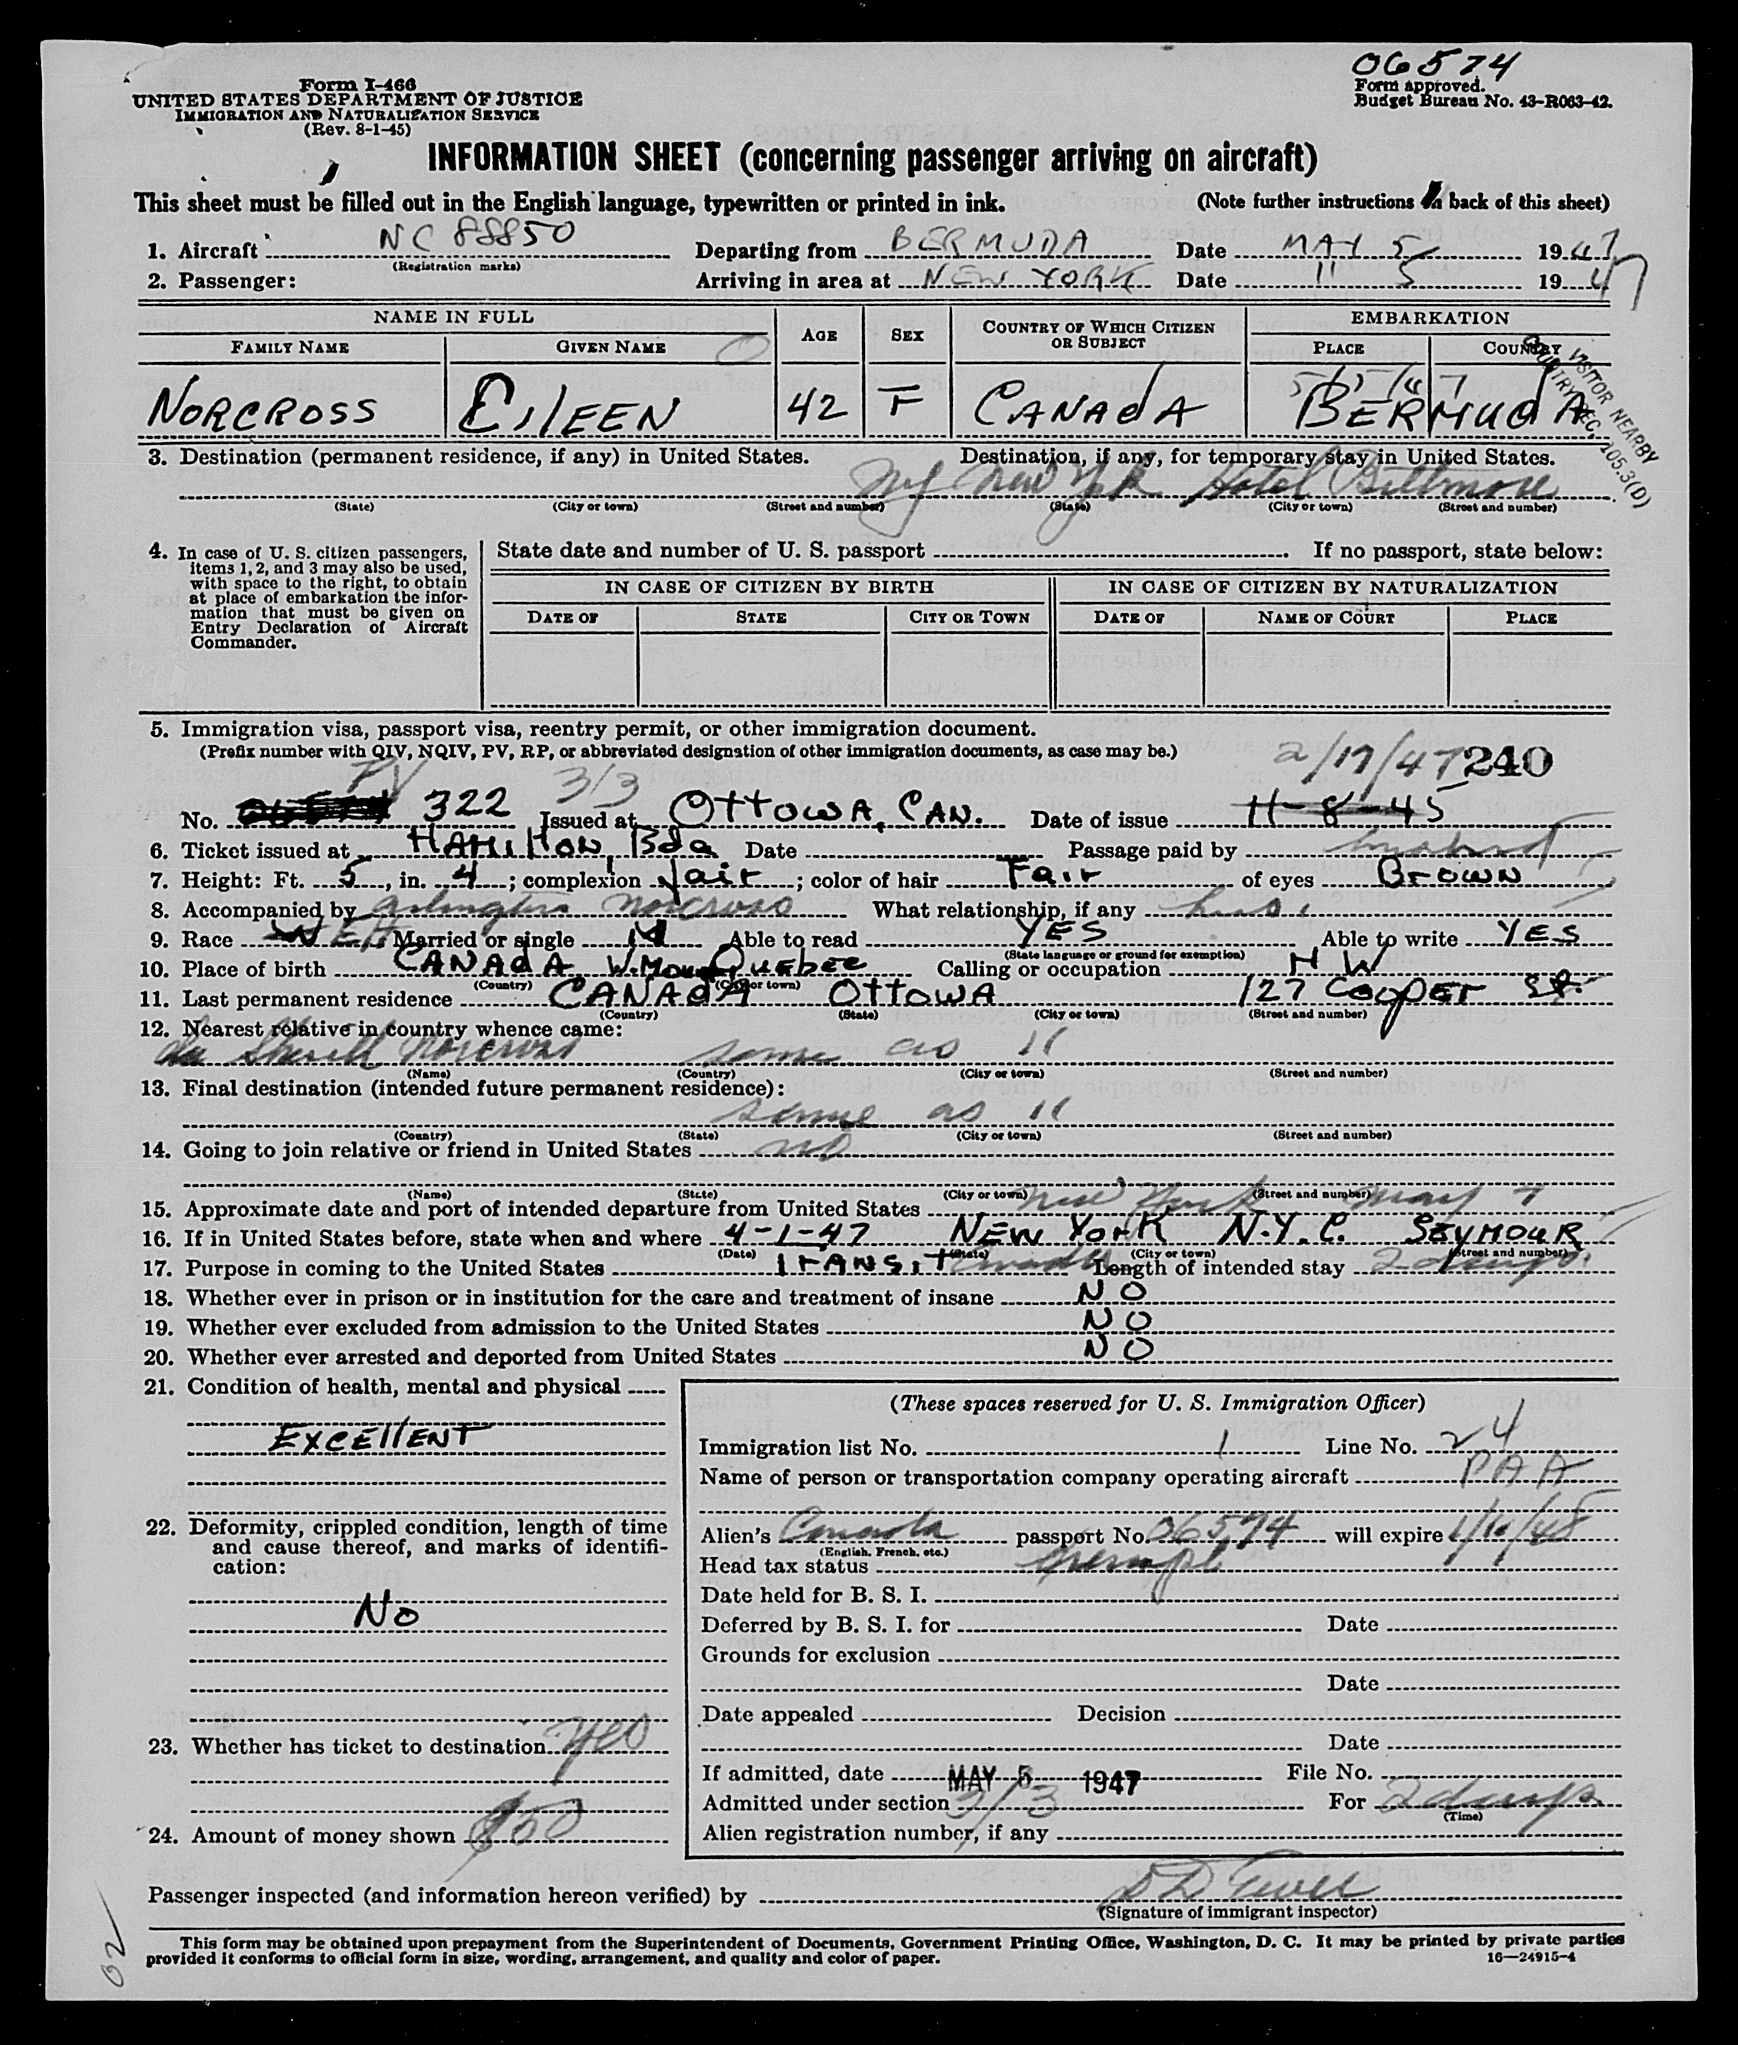 06574
Form I-466
UNITED STATES DEPARTMENT OF JUSTICE
IMMIGRATION AND NATURALIZATION SERVICE
(Rev. 8-1-45)
Form approved.
Budget Bureau No. 43-R063-42.
INFORMATION SHEET (concerning passenger arriving on aircraft)
This sheet must be filled out in the English language, typewritten or printed in ink. (Note further instructions on back of this sheet)
1. Aircraft NC 88850 Departing from BERMUDA Date MAY 5 1947
(Registration marks)
2. Passenger: Arriving in area at NEW YORK Date 11 5 1947
NAME IN FULL AGE SEX COUNTRY OF WHICH CITIZEN OR SUBJECT EMBARKATION
FAMILY NAME GIVEN NAME PLACE COUNTRY
5/5/47
NORCROSS EILEEN 42 F CANADA BERMUDA
VISITOR NEARBY
COUNTRY SEC. 105.3(D)
3. Destination (permanent residence, if any) in United States. Destination, if any, for temporary stay in United States.
NY New York Hotel Biltmore
(State) (City or town) (Street and number) (State) (City or town) (Street and number)
4. In case of U. S. citizen passengers, items 1, 2, and 3 may also be used, with space to the right, to obtain at place of embarkation the information that must be given on Entry Declaration of Aircraft Commander.
State date and number of U. S. passport . If no passport, state below:
IN CASE OF CITIZEN BY BIRTH IN CASE OF CITIZEN BY NATURALIZATION
DATE OF STATE CITY OR TOWN DATE OF NAME OF COURT PLACE
5. Immigration visa, passport visa, reentry permit, or other immigration document.
(Prefix number with QIV, NQIV, PV, RP, or abbreviated designation of other immigration documents, as case may be.)
2/17/47 240
PV 3/3
No. 322 Issued at OTTOWA, CAN. Date of issue 11-8-45
6. Ticket issued at HAMILTON, Bda Date Passage paid by husband
7. Height: Ft. 5, in. 4; complexion fair; color of hair Fair of eyes Brown
8. Accompanied by Arlington Norcross What relationship, if any hus.
9. Race W Married or single M Able to read YES Able to write YES
(State language or ground for exemption)
10. Place of birth CANADA, Quebec Calling or occupation HW
(Country) (City or town)
11. Last permanent residence CANADA OTTOWA 127 COOPER St.
(Country) (State) (City or town) (Street and number)
12. Nearest relative in country whence came:
Norcross same as 11
(Name) (Country) (City or town) (Street and number)
13. Final destination (intended future permanent residence):
same as 11
(Country) (State) (City or town) (Street and number)
14. Going to join relative or friend in United States no
(Name) (State) (City or town) (Street and number)
15. Approximate date and port of intended departure from United States New York May 7
16. If in United States before, state when and where 4-1-47 NEW YORK N.Y.C. SEYMOUR
(Date) (State) (City or town) (Street and number)
17. Purpose in coming to the United States TRANSIT Length of intended stay 2 days.
18. Whether ever in prison or in institution for the care and treatment of insane NO
19. Whether ever excluded from admission to the United States NO
20. Whether ever arrested and deported from United States NO
21. Condition of health, mental and physical
EXCELLENT
22. Deformity, crippled condition, length of time and cause thereof, and marks of identification:
No
23. Whether has ticket to destination yes
24. Amount of money shown
(These spaces reserved for U. S. Immigration Officer)
Immigration list No. 1 Line No. 24
Name of person or transportation company operating aircraft PAA
Alien's Canada passport No. 06574 will expire
(English, French, etc.)
Head tax status exempt
Date held for B. S. I.
Deferred by B. S. I. for Date
Grounds for exclusion
Date
Date appealed Decision
Date
If admitted, date MAY 5 1947 File No.
Admitted under section 3/3 For 2 days
(Time)
Alien registration number, if any
Passenger inspected (and information hereon verified) by
(Signature of immigrant inspector)
This form may be obtained upon prepayment from the Superintendent of Documents, Government Printing Office, Washington, D. C. It may be printed by private parties
provided it conforms to official form in size, wording, arrangement, and quality and color of paper. 16—24915-4
02